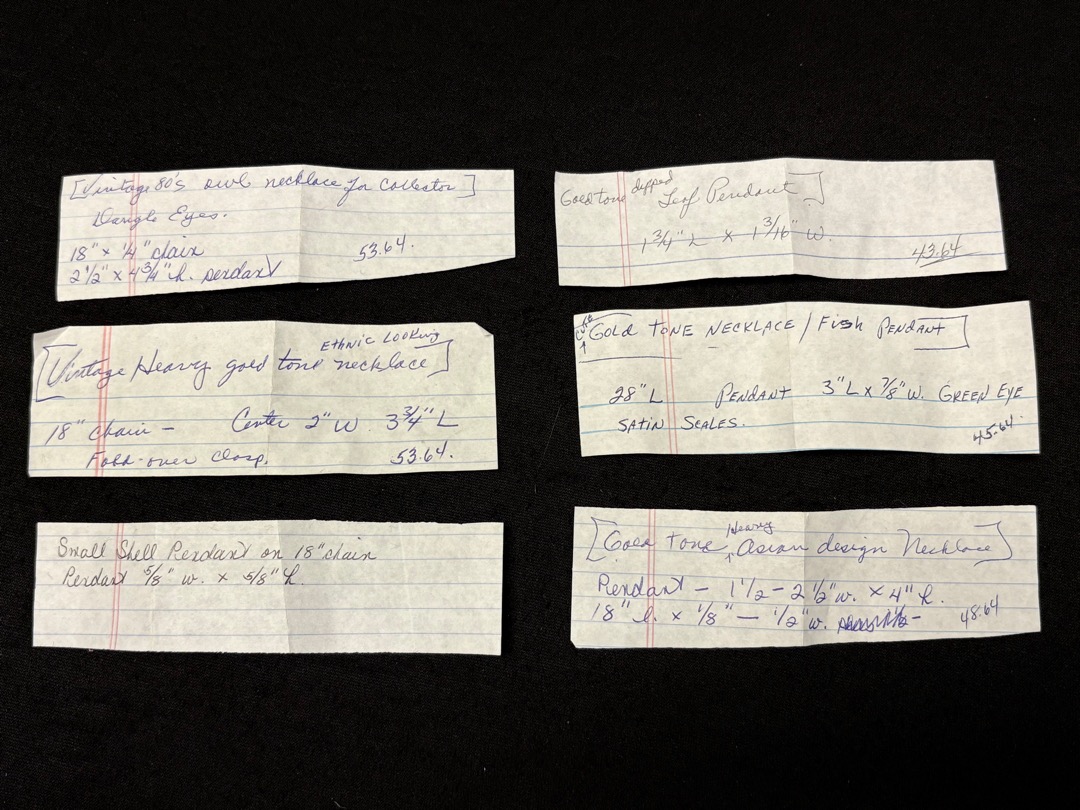 [Vintage 80's owl necklace for collector]
Dangle Eyes.
18" x 1/4" chain 53.64.
2 1/2" x 4 3/4" h. pendant
Goldtone dipped Leaf Pendant]
1 3/4" L x 1 3/16" w.
43.64
Ethnic Looking
[Vintage Heavy gold tone necklace]
18" chain - Center 2" W 3 3/4" L
Fold-over clasp. 53.64.
Cute
[GOLD TONE NECKLACE / Fish PENDANT]
28" L PENDANT 3" L x 7/8" W. GREEN EYE
SATIN SCALES. 45.64
Small Shell Pendant on 18" chain
Pendant 5/8" w. x 5/8" h.
[Gold tone Heavy Asian design Necklace]
Pendant - 1 1/2 - 2 1/2" w. x 4" h.
18" l. x 1/8" - 1/2" w. 48.64